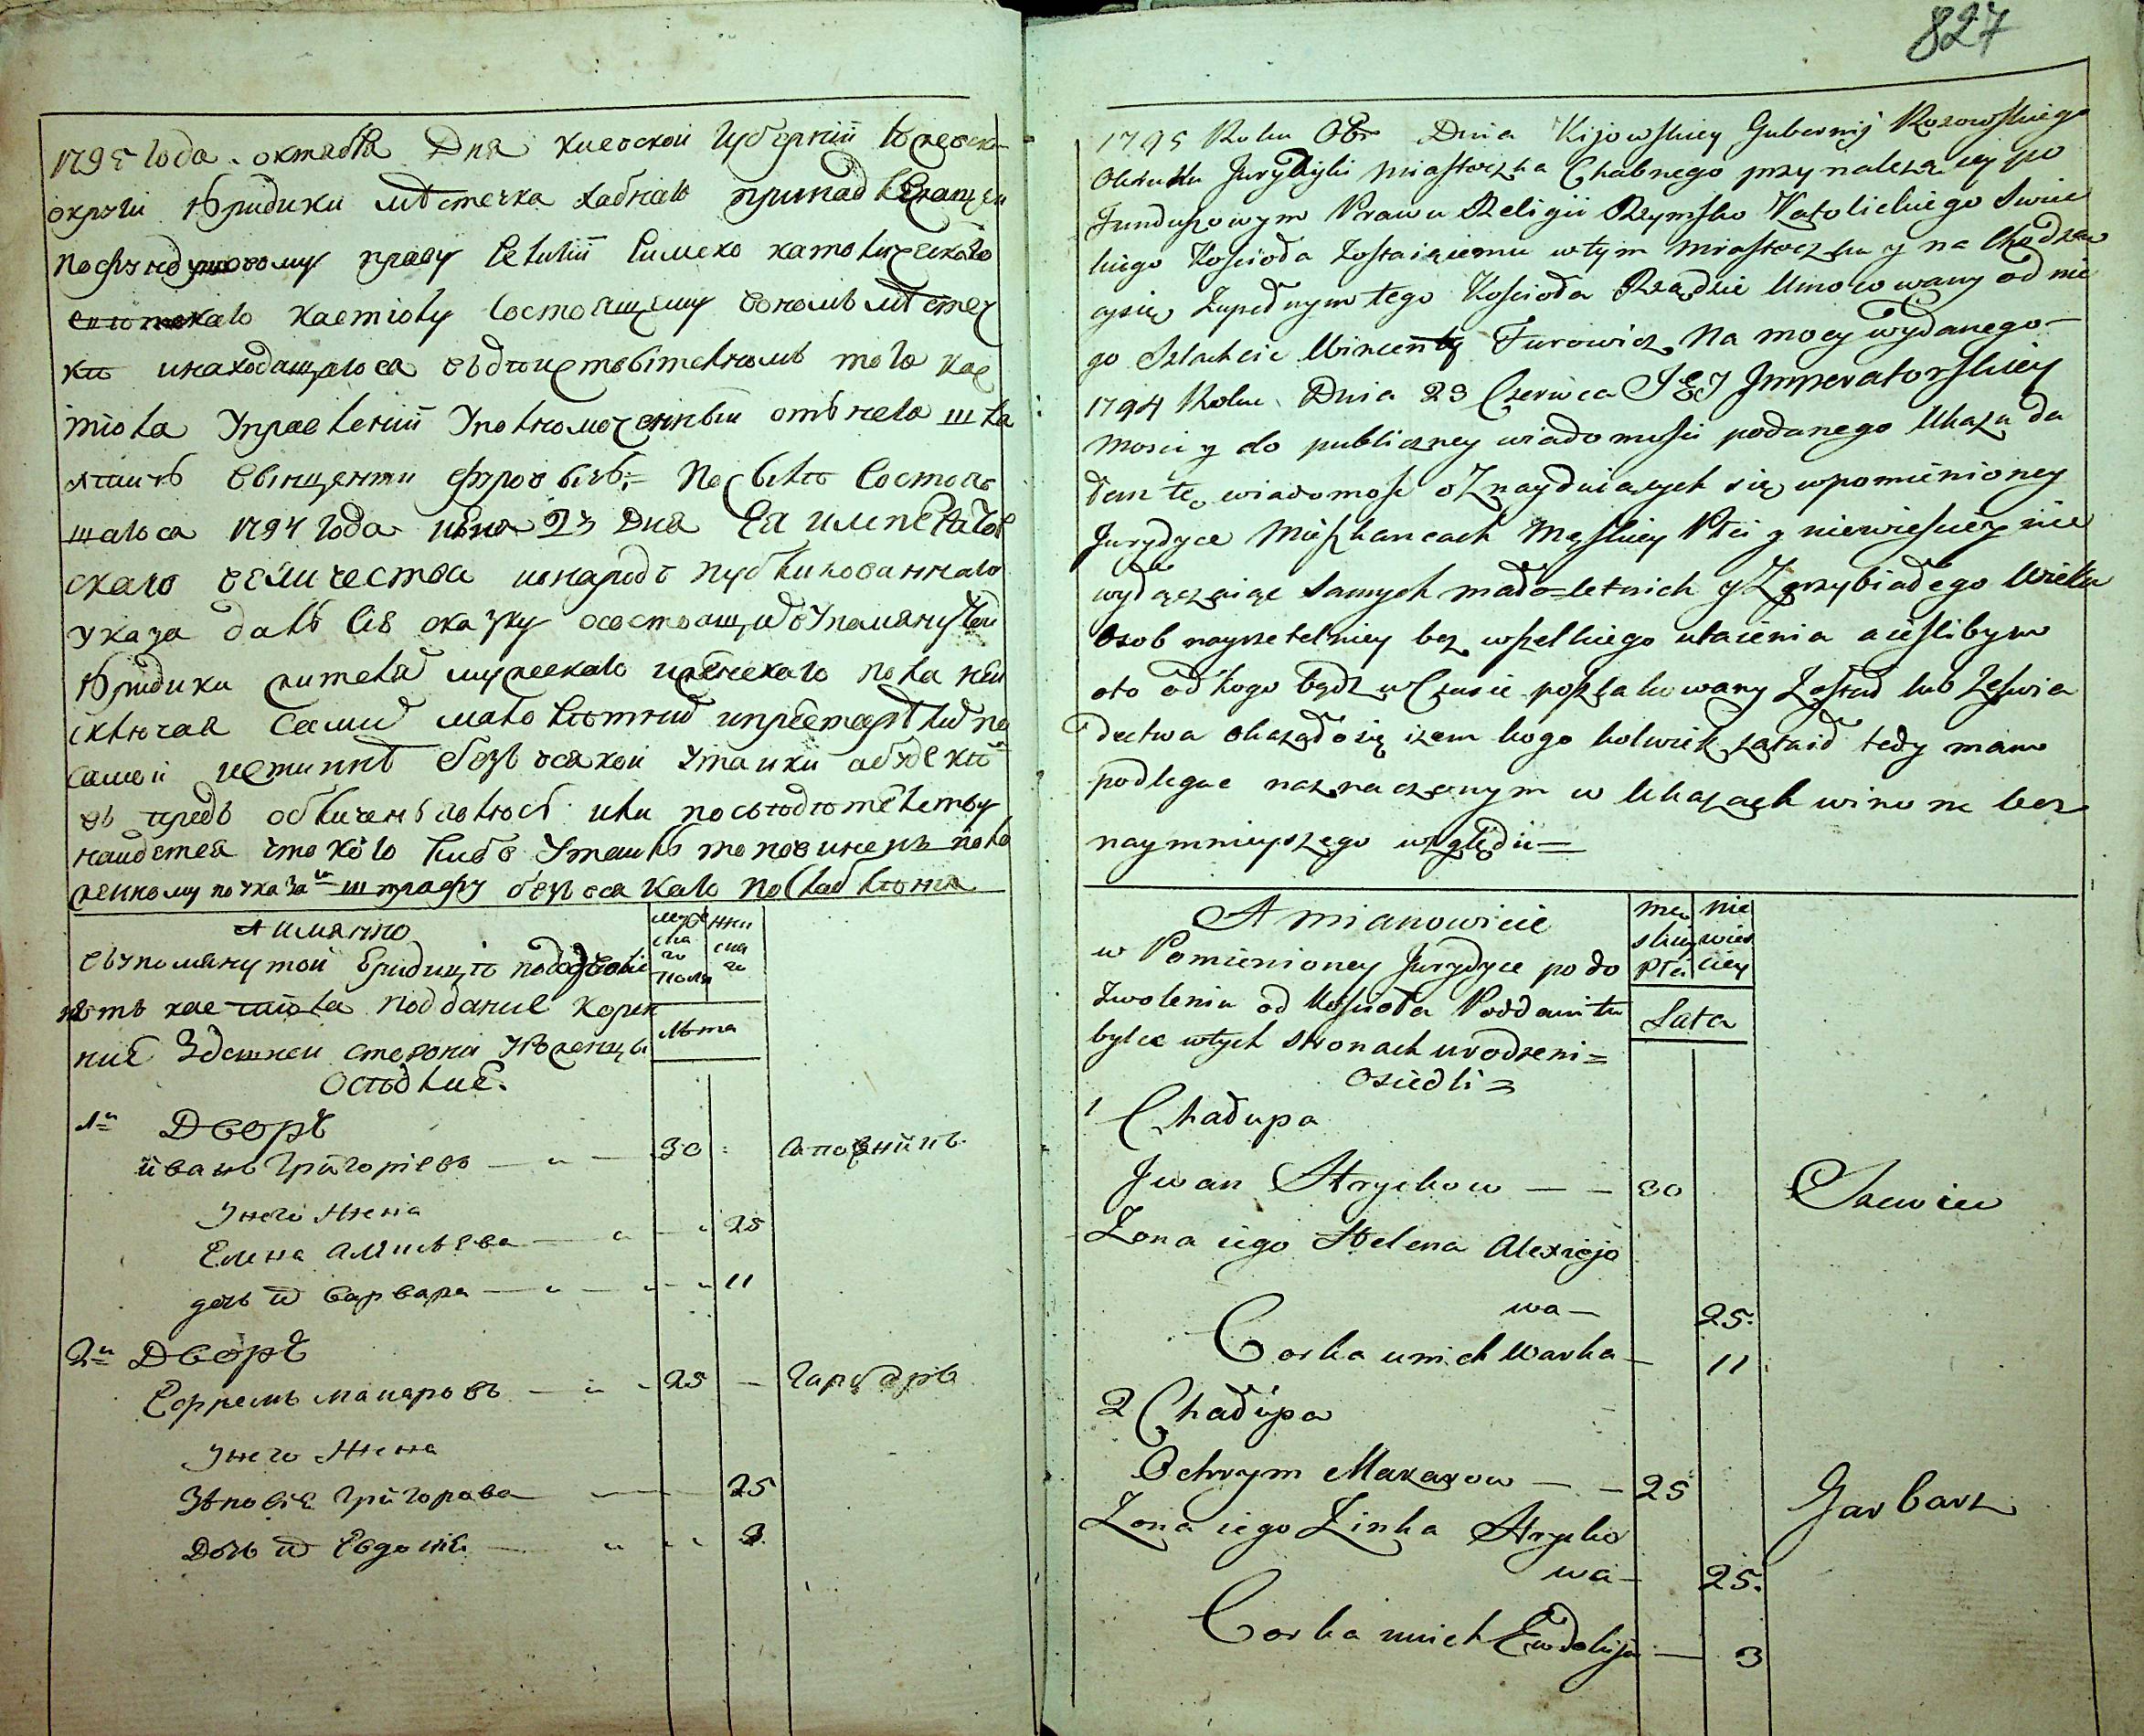 1795 года. октября Дня киевской губернии
округи Юридики мѣстечка Хабнаго принадлежащей
по фундушовому праву Религии Римско католическаго
каго костіолу состоящему вономъ мѣстеч
кѣ инаходящагося вдѣиствѣтелномъ того кос
тіола Управлении Уполномоченный отънего шла
хтичъ Винценти Ѳуровичъ Посылѣ состояв
шагося 1794 года июня 23 Дня Ея императо
скаго величества ивнародъ публикованнаго
указа далъ сію сказку осостоящихъ Упомянутой
Юридики жителяхъ мужескаго иженскаго пола не
сключая самихъ малолѣтнихъ ипрестарѣлихъ по
самой истиннѣ безъ всякой Утайки абуде кѣ
въ предь обличенъ или по свѣдѣтелству
найдется что кого либо Утаилъ то повиненъ поло
женному по указамъ штрафу безъ всякаго послабленія
А имянно
въупомянутой Юридицѣ
костіола поддание корен
ние Здешней стороны Уроженцы
Осѣдлие.
муже
ска
го
пола
жен
ска
го
лѣта
1й Дворъ
иванъ Григорievъ — " — 30 : Сапожникъ
Унего жена
Елена Алексѣева — " — " 25
дочь их варвара — " — " — " 11
2й Дворъ
Ефремъ макаровъ — " - 25 — Гарбарь
Унего жена
Зѣновія Григорова — 25
Дочь их Евдокія — " " " 3
827
1795 Roku Obr Dnia Kijowskiey Gubernij
Okruku Jurydyki Miasteczka Chabnego przynalezącey po
Funduszowym Prawu Religii Rzymsko Katolickiego Swiec
kiego Kościoła Zostaiącemu wtym Miasteczku y na Chodzą
cysię Zupełnym tego Kościoła Rządzie Umocowany od nie
go Szlachcic Wincenty Furowicz Na mocy wydanego
1794 Roku Dnia 23 Czerwca J E J Jmperatorskiey
Mosci y do publiczney wiadomosci podanego Ukazu da
łem tę wiadomość o Znayduiących się wpomienioney
Jurydyce Mieszkancach Męskiey Płci y niewieskiey nie
wyłączaiąc samych mało=letnich y Zgrzybiałego Wieku
Osob nayrzetelniey bez wszelkiego utaienia a ieślibym
oto od kogo bądz w Czasie poszlakowany Został lub Zeswia
dectwa okazało się izem kogo kolwiek zataił tedy mam
podlegac naznaczonym w Ukazach winom bez
naymnieyszego względu=
A mianowicie
w Pomienioney Jurydyce po do
zwoleniu od Kościoła Poddani tu
bylce wtych stronach urodzeni=
Osiedli=
mę
skiey
Płci
nie
wies
ciey
Lata
1 Chałupa
Jwan Hryckow — — 30 Szewiec
Zona iego Helena Alexiejo
wa — 25.
Corka unich Warka — 11
2 Chałupa
Ochrym Makarow — — 25 Garbarz
Zona iego Zinka Hrycko
wa — 25.
Corka unich Ewdokija — 3